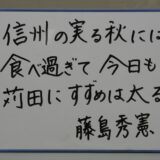 信州の実る秋には
食べ過ぎて今日も
苅田にすずめは太る
藤島秀憲